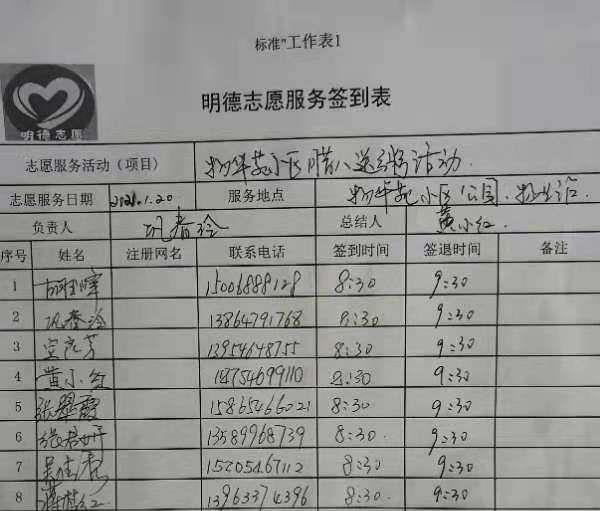 标准"工作表1
明德志愿
明德志愿服务签到表
志愿服务活动（项目） 物华苑小区腊八送粥活动.
志愿服务日期 2021.1.20 服务地点 物华苑小区公园.
负责人 巩春玲 总结人 黄小红.
序号 姓名 注册网名 联系电话 签到时间 签退时间 备注
1 15006888128 8:30 9:30
2 巩春玲 13864791768 8:30 9:30
3 13954648755 8:30 9:30
4 黄小红 18754699110 8:30 9:30
5 张翠霞 15865466021 8:30 9:30
6 13589968739 8:30 9:30
7 15205467112 8:30 9:30
8 13963374396 8:30 9:30